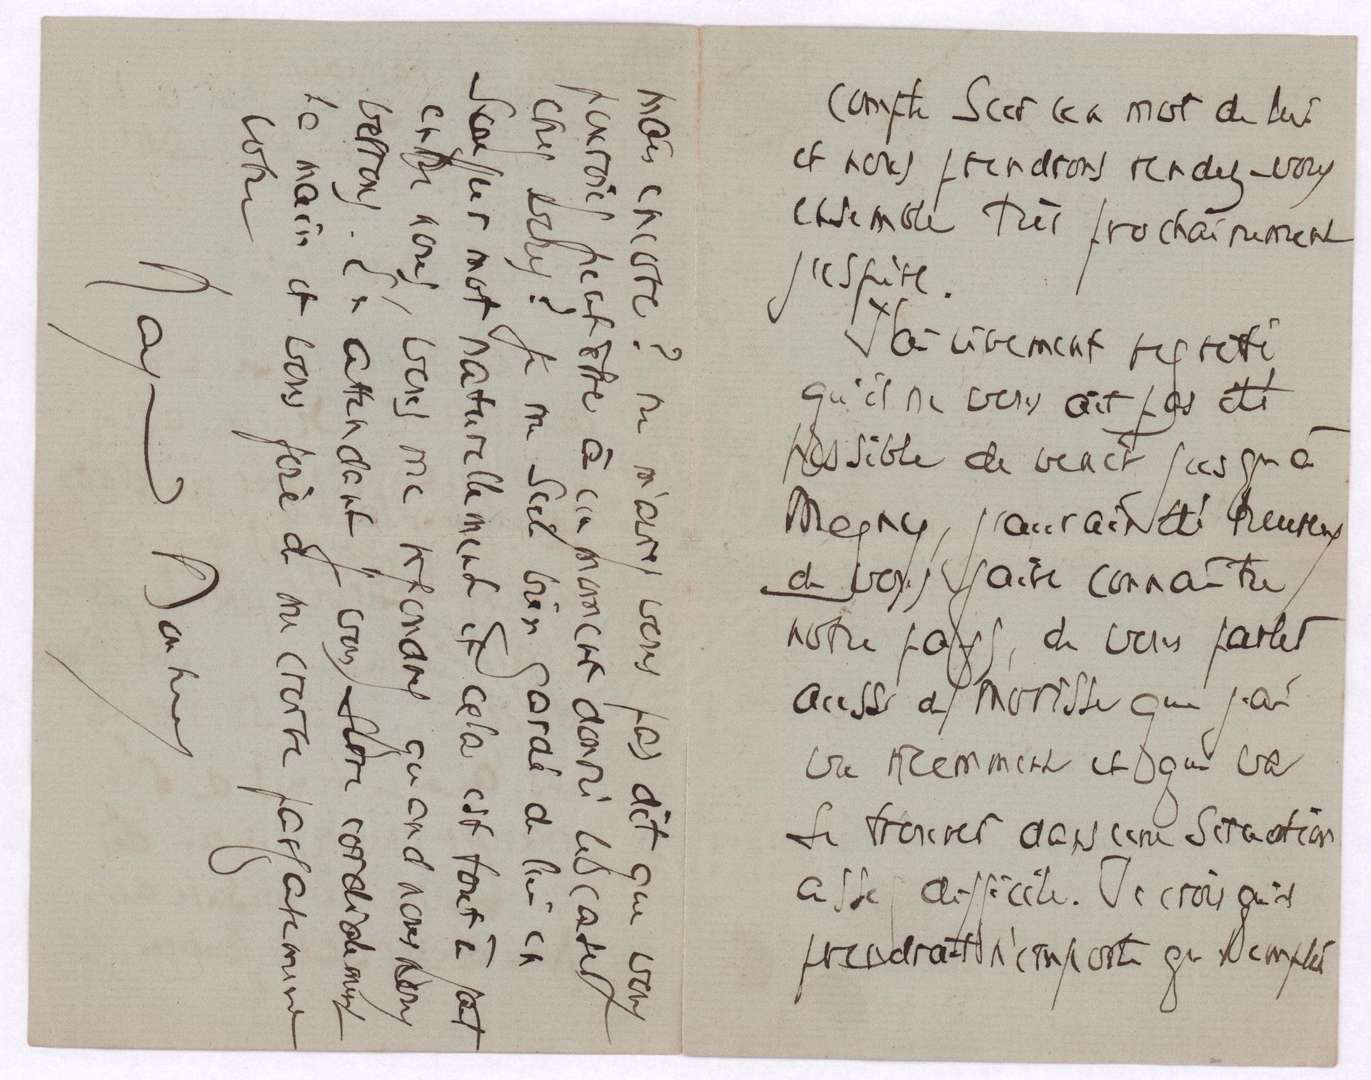 compte sur un mot de lui
et nous prendrons rendez-vous
ensemble très prochainement
j'espère.
J'ai vivement regretté
qu'il ne vous ait pas été
possible de venir jusqu'à
Magny, j'aurais été heureux
de vous faire connaître
notre pays, de vous parler
aussi de Morisse que j'ai
vu récemment et qui va
se trouver dans une situation
assez difficile. Je crois qu'il
prendrait n'importe quel emploi
mais encore ? ne m'aviez vous pas dit que vous
pourriez peut être à un moment donné le caser
chez ? Je ne sais bien garde de lui en
souffler mot naturellement et cela est tout à fait
entre nous, vous me répondrez quand nous nous
verrons. En attendant, vous serre cordialement
la main et vous prie de me croire parfaitement
votre
Raymond